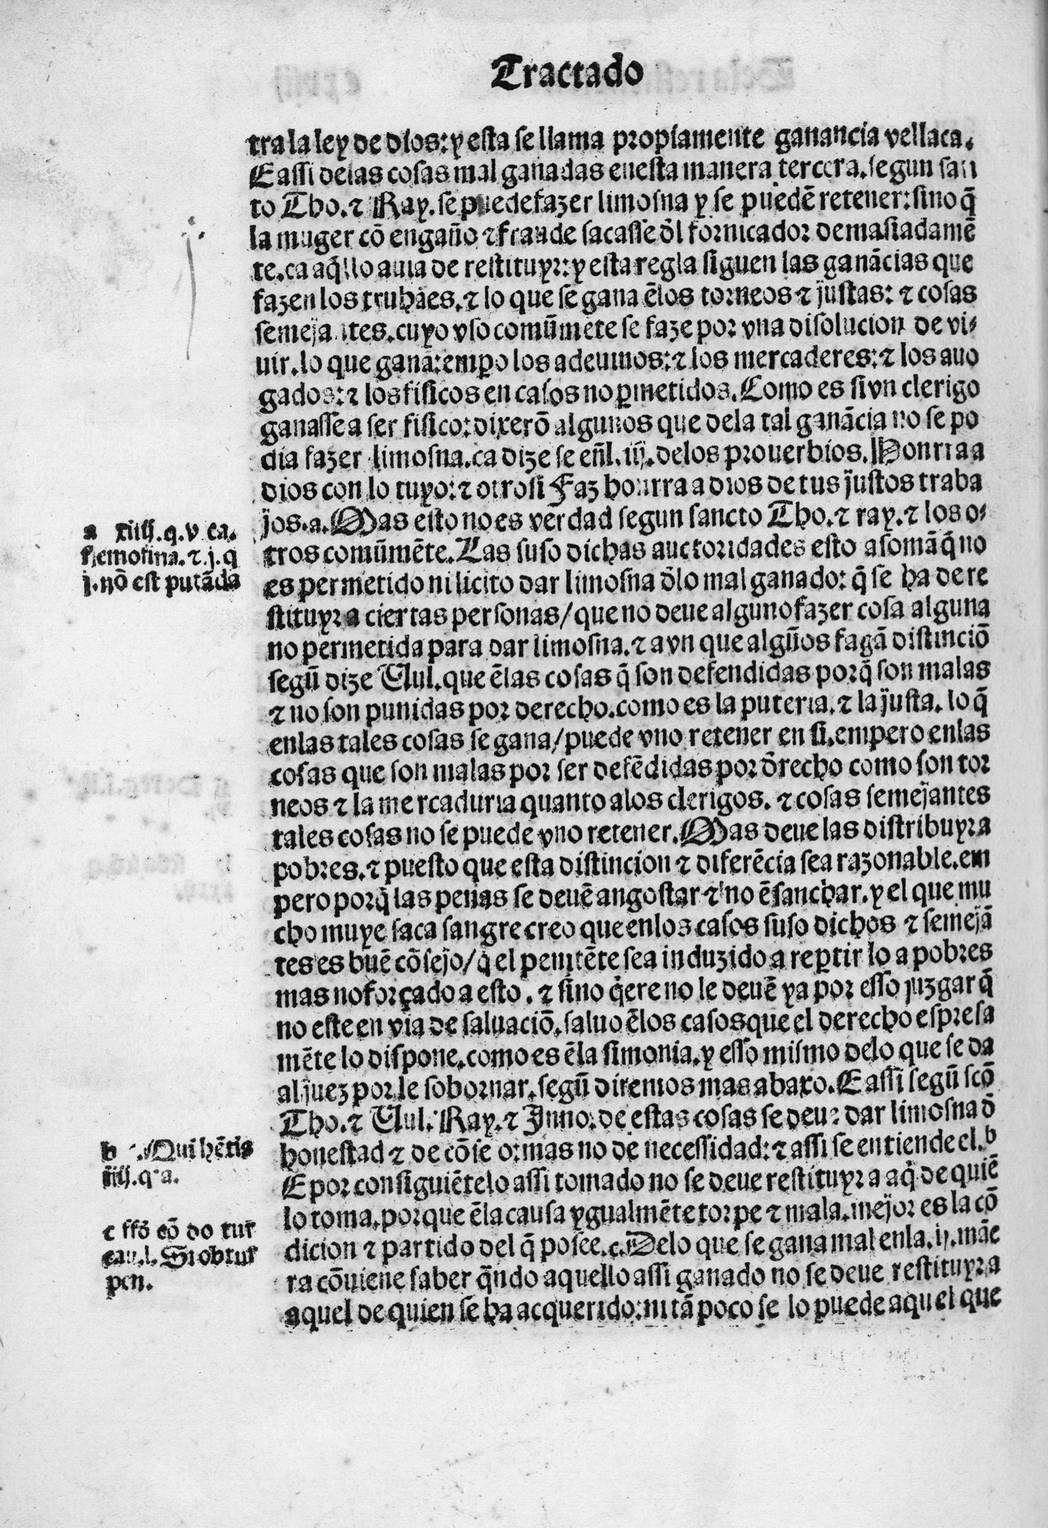 Tractado
tra la ley de dios: y esta se llama propiamente ganancia vellaca.
E assi delas cosas mal ganadas enesta manera tercera. segun san
to Tho. ⁊ Ray. se puede fazer limosna y se puedē retener: sino q̄
la muger cō engaño ⁊ fraude sacasse d̄l fornicador demasiadamē
te. ca aq̄llo auia de restituyr: y esta regla siguen las ganācias que
fazen los truhāes. ⁊ lo que se gana ēlos torneos ⁊ justas: ⁊ cosas
semejantes. cuyo vso comūmēte se faze por vna disolucion de vi-
uir. lo que ganā: empo los adeuinos: ⁊ los mercaderes: ⁊ los auo
gados: ⁊ los fisicos en casos no ꝑmetidos. Como es si vn clerigo
ganasse a ser fisico: dixerō algunos que dela tal ganācia no se po
dia fazer limosna. ca dize se enl̄. iij. delos prouerbios. Honrra a
dios con lo tuyo: ⁊ otrosi Faz honrra a dios de tus justos traba
jos. a. Mas esto no es verdad segun sancto Tho. ⁊ ray. ⁊ los o-
tros comūmēte. Las suso dichas auctoridades esto asomā q̄ no
es permetido ni licito dar limosna d̄lo mal ganado: q̄ se ha de re
stituyr a ciertas personas/ que no deue alguno fazer cosa alguna
no permetida para dar limosna. ⁊ avn que algūos fagā distinciō
segū dize Vul. que ēlas cosas q̄ son defendidas porq̄ son malas
⁊ no son punidas por derecho. como es la puteria. ⁊ la justa. lo q̄
enlas tales cosas se gana/ puede vno retener en si. empero enlas
cosas que son malas por ser defēdidas por d̄recho como son tor
neos ⁊ la mercaduria quanto alos clerigos. ⁊ cosas semejantes
tales cosas no se puede vno retener. Mas deue las distribuyr a
pobres. ⁊ puesto que esta distincion ⁊ diferēcia sea razonable. em
pero porq̄ las penas se deuē angostar ⁊ no ēsanchar. y el que mu
cho muye saca sangre creo que enlos casos suso dichos ⁊ semejā
tes es buē cōsejo/ q̄ el penitēte sea induzido a reꝑtir lo a pobres
mas no forçado a esto. ⁊ sino q̄ere no le deuē ya por esso juzgar q̄
no este en via de saluaciō. saluo ēlos casos que el derecho espresa
mēte lo dispone. como es ēla simonia. y esso mismo delo que se da
al juez por le sobornar. segū diremos mas abaxo. E assi segū scō
Tho. ⁊ Vul. Ray. ⁊ Inno. de estas cosas se deue dar limosna d̄
honestad ⁊ de cōsejo: mas no de necessidad: ⁊ assi se entiende el. b
E por consiguiēte lo assi tomado no se deue restituyr a aq̄l de quiē
lo toma. porque ēla causa ygualmēte torpe ⁊ mala. mejor es la cō
dicion ⁊ partido del q̄ posee. c. Delo que se gana mal enla. ij. māe
ra cōuiene saber q̄ndo aquello assi ganado no se deue restituyr a
aquel de quien se ha acquerido: ni tā poco se lo puede aquel que
a xiiij. q. v. ca.
elemosina. ⁊. j. q
j. nō est putāda
b Qui hētis
iiij. q a.
c ff. cō do tur
cau. l. Si ob tur
pen.